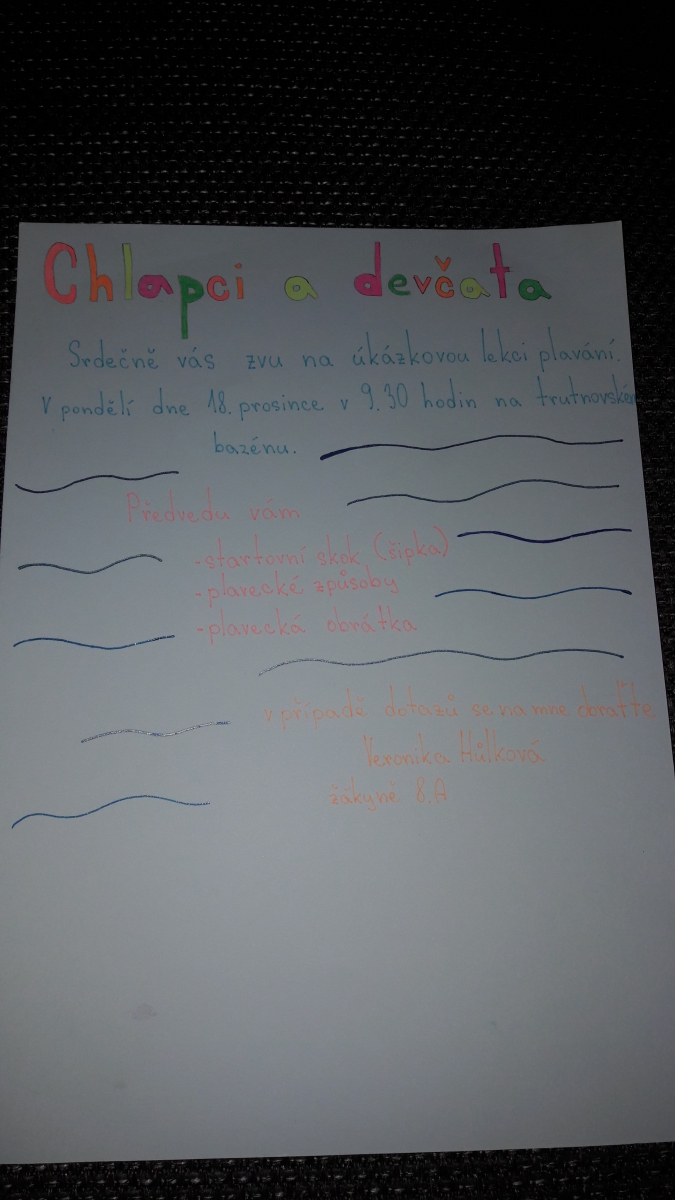 Chlapci a devčata
Srdečně vás zvu na úkázkovou lekci plavání.
V pondělí dne 18. prosince v 9.30 hodin na trutnovském
bazénu.
Předvedu vám
-startovní skok (šipka)
-plavecké způsoby
-plavecká obrátka
v případě dotazů se na mne obraťte
Veronika Hůlková
žákyně 8.A